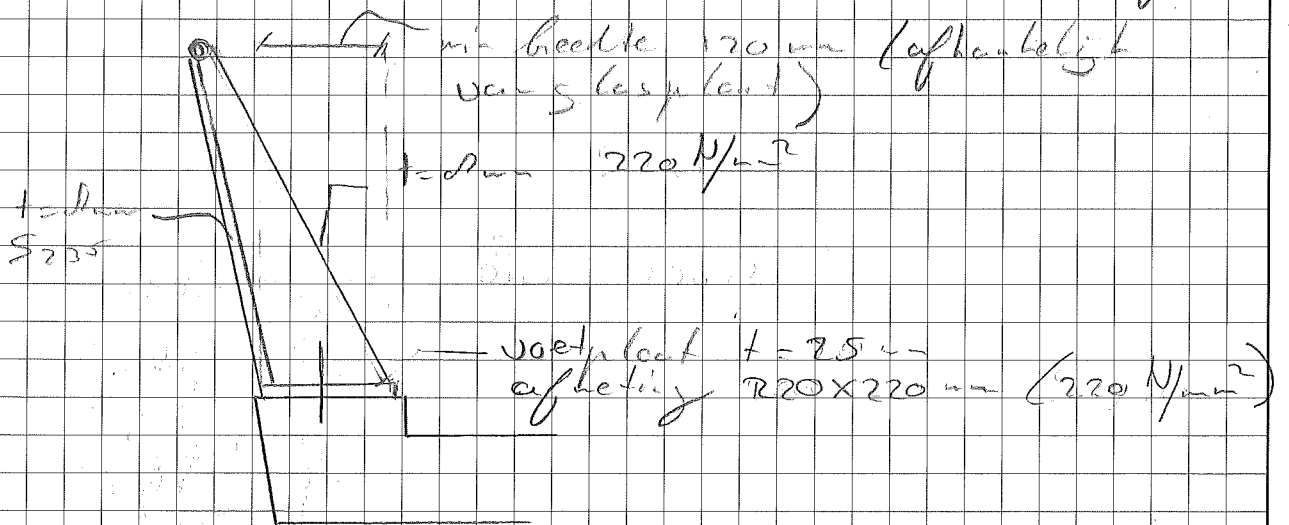 min breedte 120 mm (afhankelijk
van glasplaat)
t= 8mm 220 N/mm²
t= 8mm
S235
voetplaat t = 25 mm
afmeting 220x220 mm (220 N/mm²)